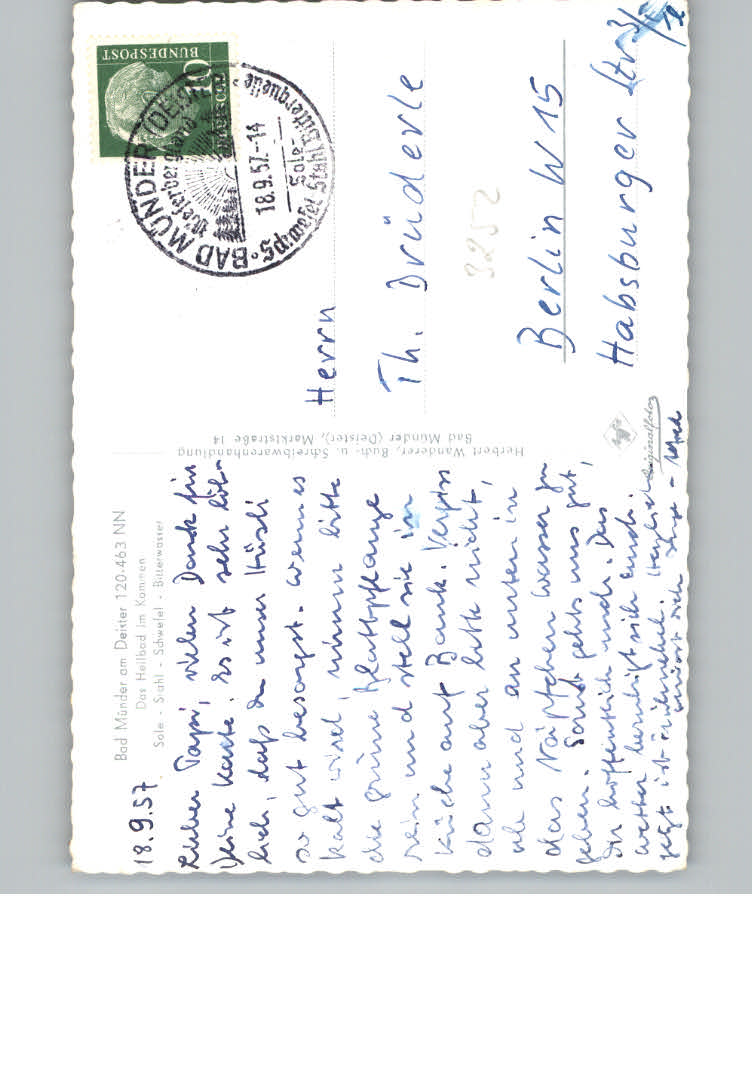 Bad Münder am Deister 120-463 NN
Das Heilbad im Kommen
Sole - Stahl - Schwefel - Bitterwasser
18.9.57
Lieber Papi, vielen Dank für
Deine Karte. Es ist sehr lieb
lich, daß Du unser Hüsli
so gut besorgst. Wenn es
kalt wird, nimm bitte
die grüne Blattpflanze
rein und stell sie in
Küche auf Bank. Vergiss
dann aber bitte nicht,
ab und an unten in
das Näpfchen Wasser zu
geben. Sonst gehts uns gut,
Dir hoffentlich auch. Das
Wetter beruhigt sich auch.
jetzt ist
Herbert Wanderer, Buch- u. Schreibwarenhandlung
Bad Münder (Deister), Marktstraße 14
Originalfoto
BUNDESPOST
10
BAD MÜNDER (DEISTER)
Weserbergland
18.9.57.-14
Sole-
Schwefel Stahl Bitterquelle
Herrn
Th. Brüderle
3252
Berlin W 15
Habsburger Str.